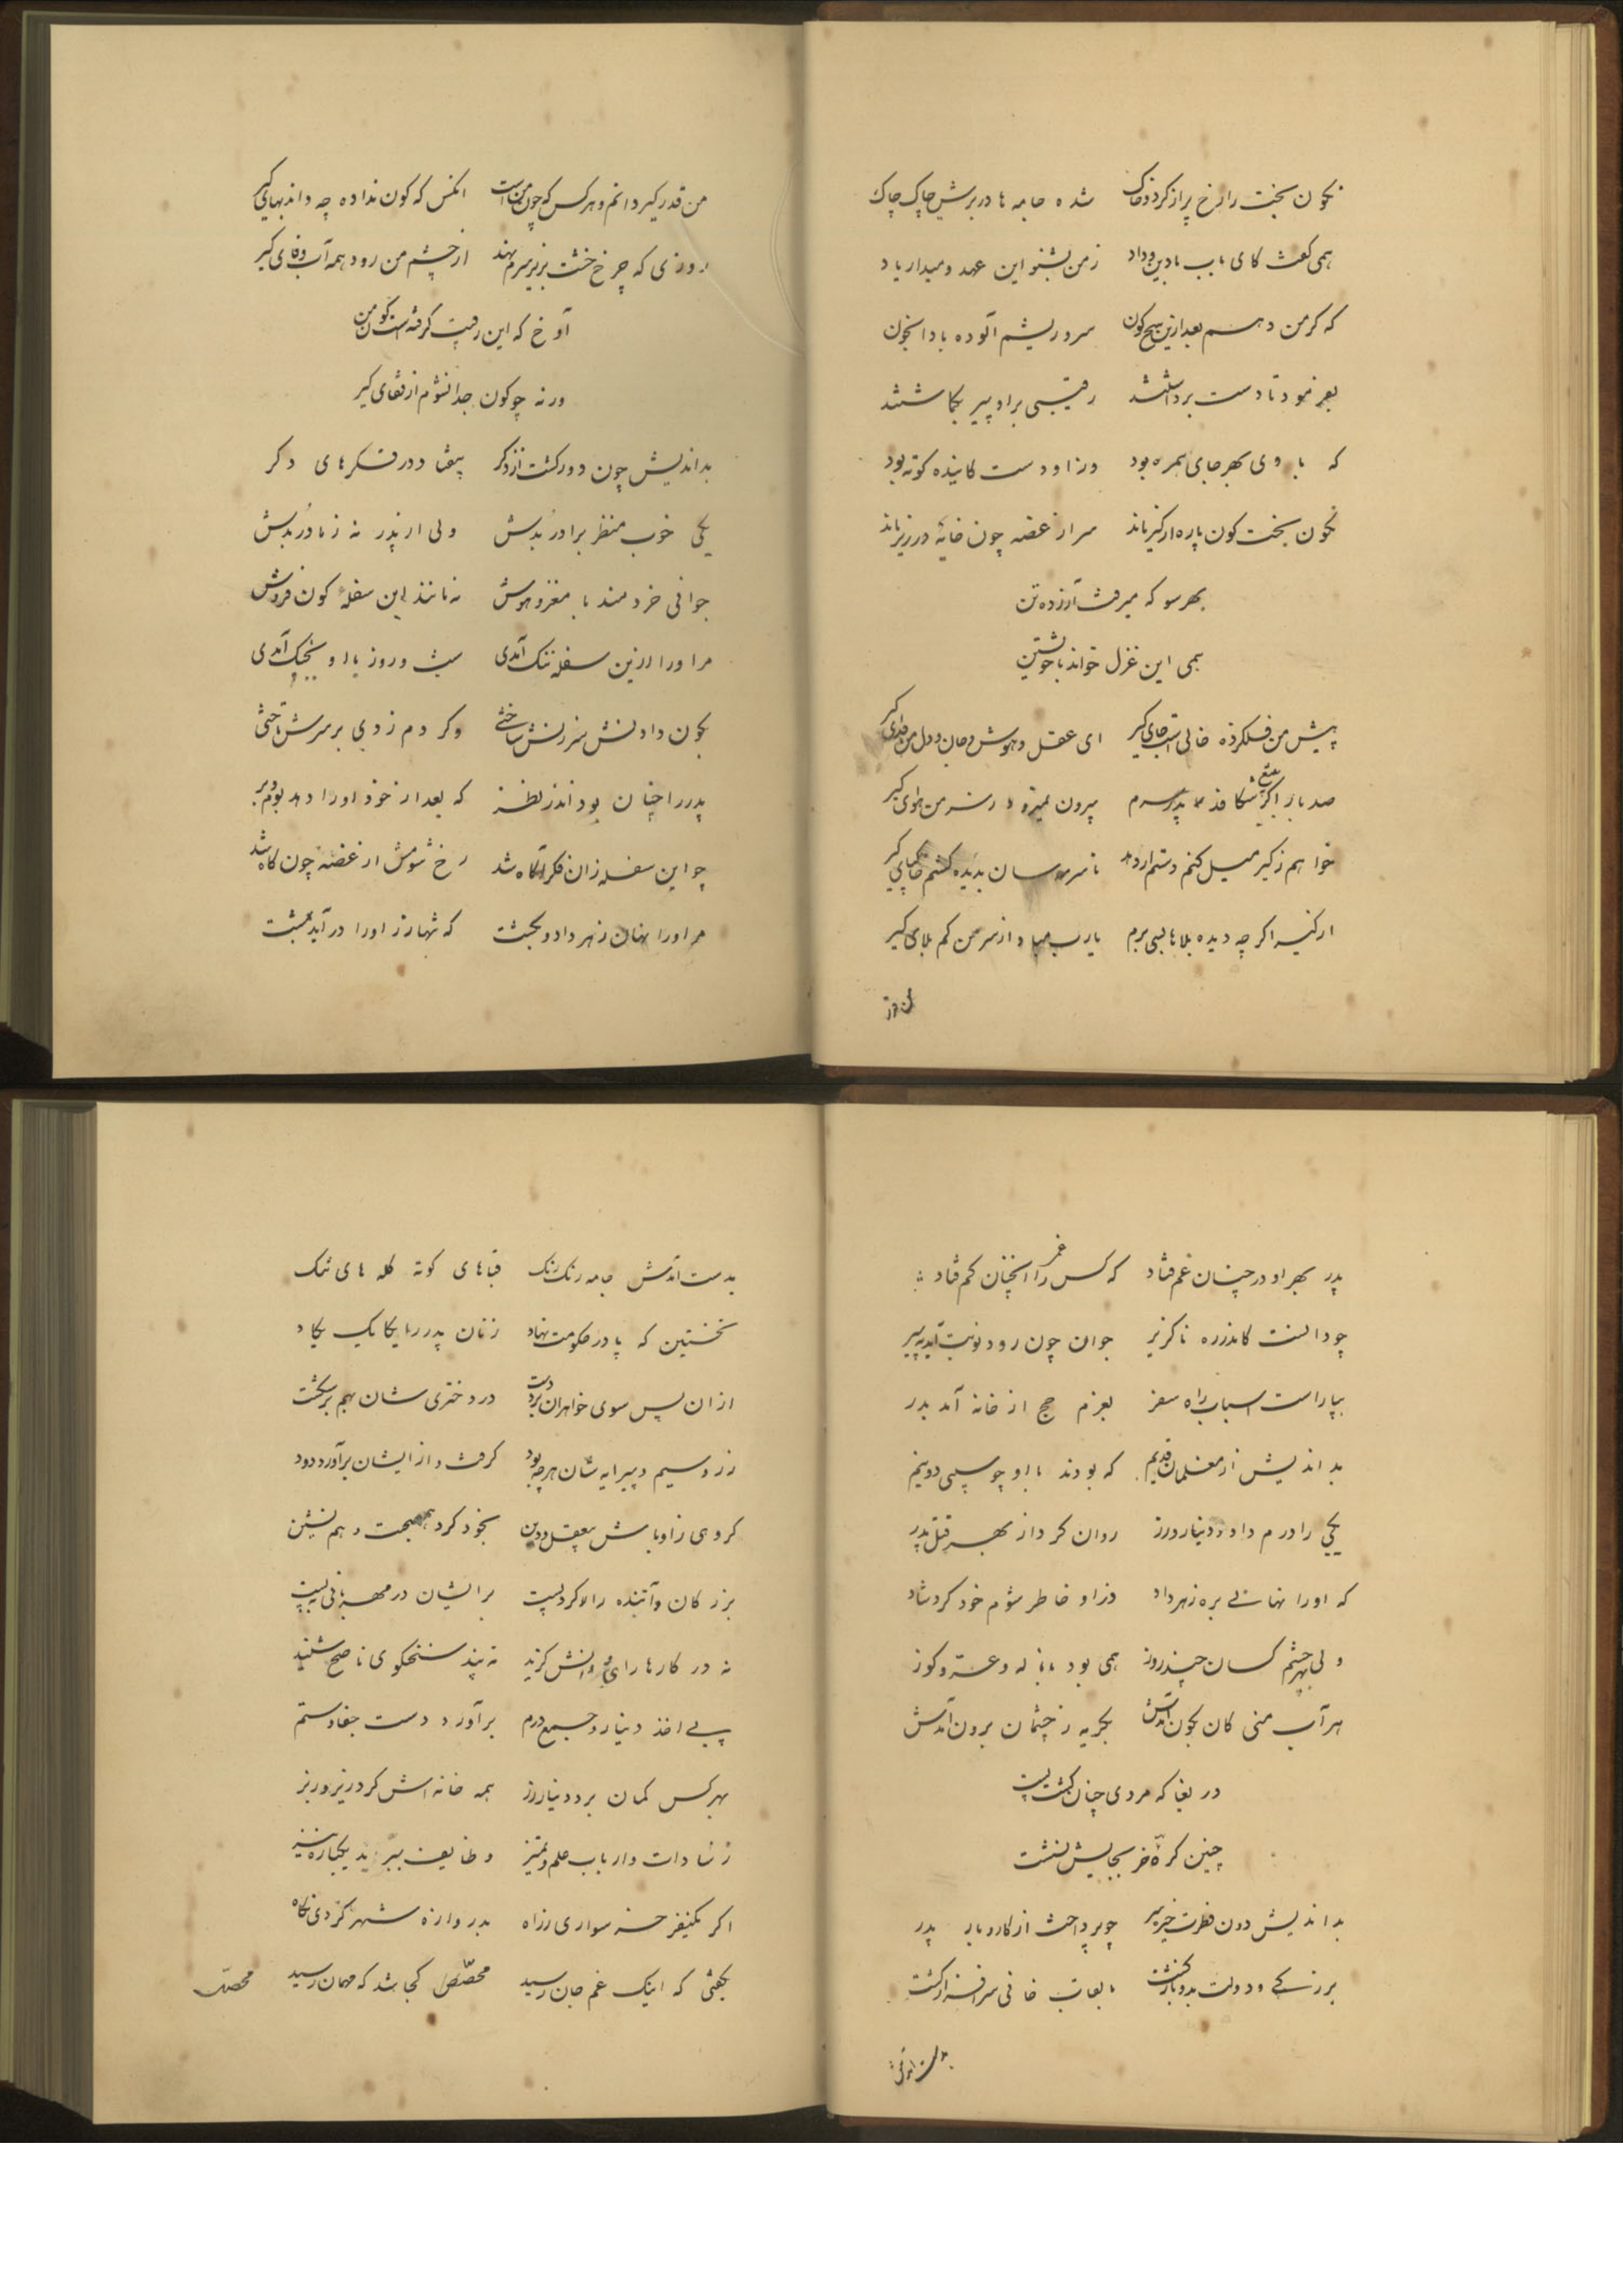 نکون بخت را رخ پر از کرد و خاک شده جامه ها در برش چاک چاک
همی کفت کای باب با دین و داد ز من بشنو این عهد و میدار یاد
که کر من دهم بعد ازین هیچ کون سر و ریشم آلوده بادا بخون
بفرمود تا دست برداشتند رقیبی بر او پیر بکماشتند
که با وی بهر جای همره بود وز او دست کاینده کوته بود
نکون بخت کون پاره از کیر ماند سر از غصه چون خایه در زیر ماند
بهر سو که میرفت آزرده تن
همی این غزل خواند با خویشتن
پیش من فلکزده خالی است جای کیر ای عقل و هوش و جان و دل من فدای کیر
صد بار اکر شکافد بتیغ پدر سرم بیرون نمیرود ز سر من هوای کیر
خواهم ز کیر میل کنم دستم ار دهد تا سرمه سان بدیده کشم خاکپای کیر
از کیر اکر چه دیده بلاها بسی برم یارب مباد از سر من کم بلای کیر
من قدر
من قدر کیر دانم و هر کس که چون من است انکس که کون نداده چه داند بهای کیر
روزی که چرخ خشت بزیر سرم نهد از چشم من رود همه آب وفای کیر
آوخ که این رقیب کرفته است کون من
ورنه چو کون جدا نشوم از قفای کیر
بد اندیش چون دور کشت از ذکر بیفتاد در فکرهای دکر
یکی خوب منظر برادر بدش ولی از پدر نه ز مادر بدش
جوانی خردمند با مغز و هوش نه مانند این سفله کون فروش
مر او را ازین سفله ننک آمدی شب و روز با او بجنک آمدی
بکون دادنش سرزنش ساختی وکر دم زدی بر سرش تاختی
پدر را چنان بود اندر نظر که بعد از خود او را دهد بوم و بر
چو این سفله زان فکر آکاه شد رخ شومش از غصه چون کاه شد
مر او را نهان زهر داد و بکشت که تنها زر او را در آید بمشت
پدر بهر او در چنان غم فتاد که کس را انچنان غم کم فتاد
چو دانست کامد ره ناکزیر جوان چون رود نوبت آید به پیر
بیاراست اسباب راه سفر بعزم حج از خانه آمد بدر
بد اندیش از مفلمان قدیم که بودند با او چو سیبی دو نیم
یکی را درم داد و دینار و زر روان کرد از بهر قتل پدر
که او را نهانی بره زهر داد وز او خاطر شوم خود کرد شاد
ولی بهر چشم کسان چند روز همی بود با ناله و عر و کوز
هر آب منی کان بکون آمدش بکریه ز چشمان برون آمدش
دریغا که مردی چنان کشت پست
چنین کره خر بجایش نشست
بد اندیش دون فطرت خیره سر چو پرداخت از کار و بار پدر
بزرکی و دولت بدو بازکشت بالقاب خانی سرافراز کشت
بدست آمدش
بدست آمدش جامه رنک رنک قباهای کوته کله های تنک
نخستین که پا در حکومت نهاد زنان پدر را یکایک بکاد
از ان پس سوی خواهران برد دست در دختری شان بهم بر شکست
زر و سیم و پیرایه شان هر چه بود کرفت و از ایشان برآورد دود
کروهی ز اوباش بیعقل و دین بخود کرد همصحبت و همنشین
بزرکان و آینده را در ببست بر ایشان در مهربانی ببست
نه در کارها رای و دانش کزید نه پند سخنکوی ناصح شنید
پی اخذ دینار و جمع درم برآورد دست جفا و ستم
بهر کس کمان برد دینار و زر همه خانه اش کرد زیر و زبر
ز سادات و ارباب علم و تمیز وظایف ببرید یکباره نیز
اکر یکنفر خر سواری ز راه بدروازه شهر کردی نکاه
بکفتی که اینک غم جان رسید محصص کجا شد که مهمان رسید
محصص